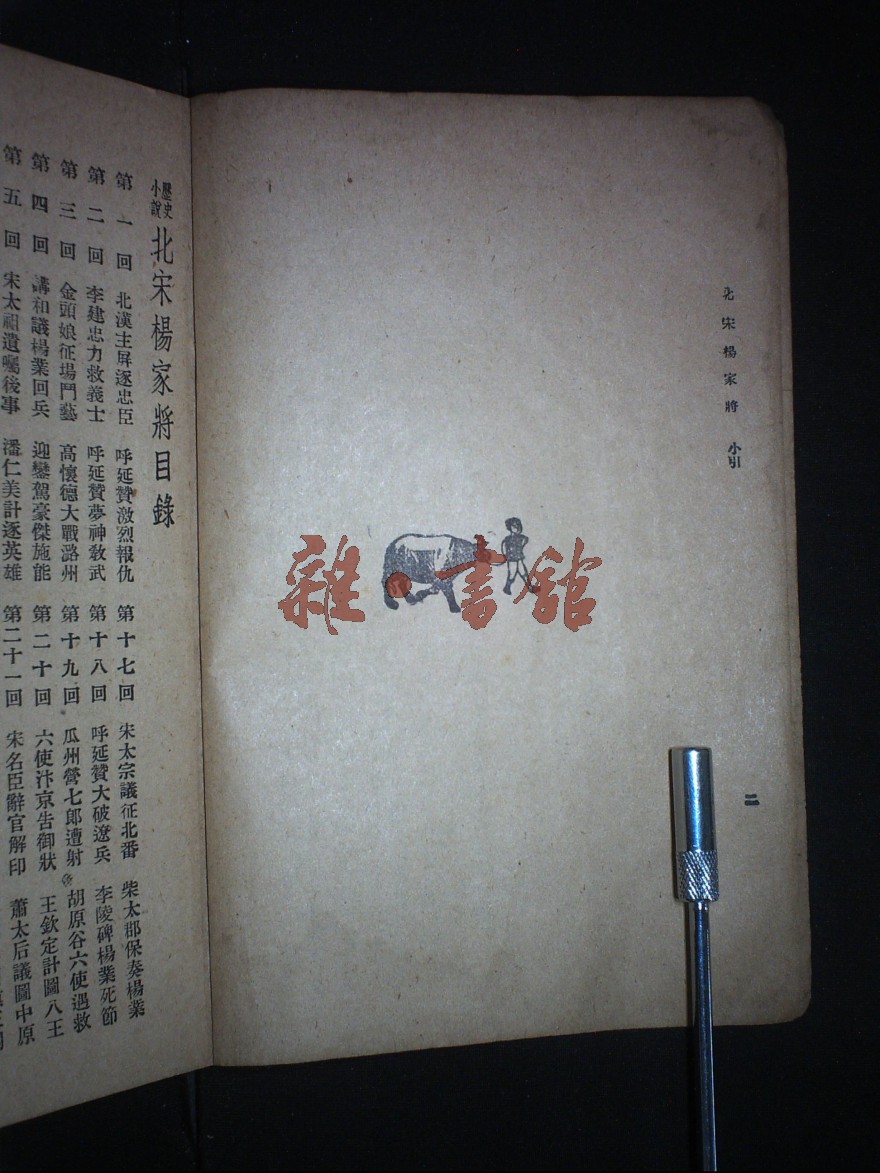 北宋楊家將 小引
二
雜·書館
歷史小說 北宋楊家將目錄
第一回 北漢主屏逐忠臣 呼延贊激烈報仇 第十七回 宋太宗議征北番 柴太郡保奏楊業
第二回 李建忠力救義士 呼延贊夢神教武 第十八回 呼延贊大破遼兵 李陵碑楊業死節
第三回 金頭娘征場鬥藝 高懷德大戰潞州 第十九回 瓜州營七郎遭射 胡原谷六使遇救
第四回 講和議楊業回兵 迎鑾駕豪傑施能 第二十回 六使汴京告御狀 王欽定計圖八王
第五回 宋太祖遺囑後事 潘仁美計逐英雄 第二十一回 宋名臣辭官解印 蕭太后議圖中原